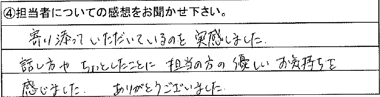 ④担当者についての感想をお聞かせ下さい。
寄り添っていただいているのを実感しました。
話し方やちょっとしたことに担当の方の優しいお気持ちを
感じました。ありがとうございました。